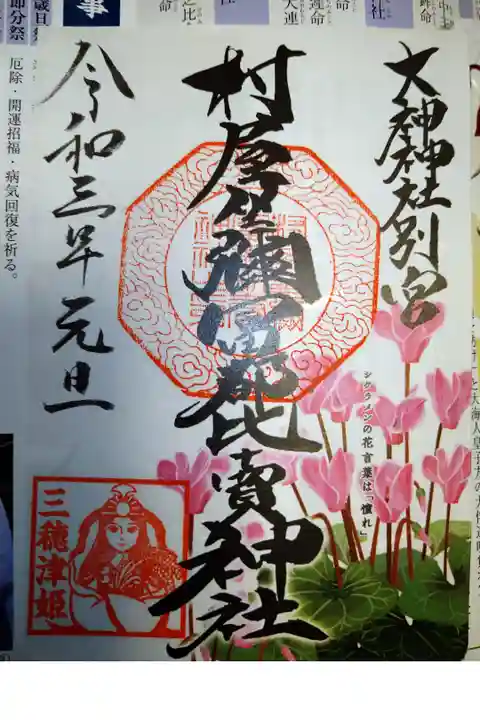 大神神社別宮
村屋坐彌冨都比賣神社
令和三年元旦
三穂津姫
シクラメンの花言葉は「憧れ」
事
節分祭
厄除・開運招福・病気回復を祈る。